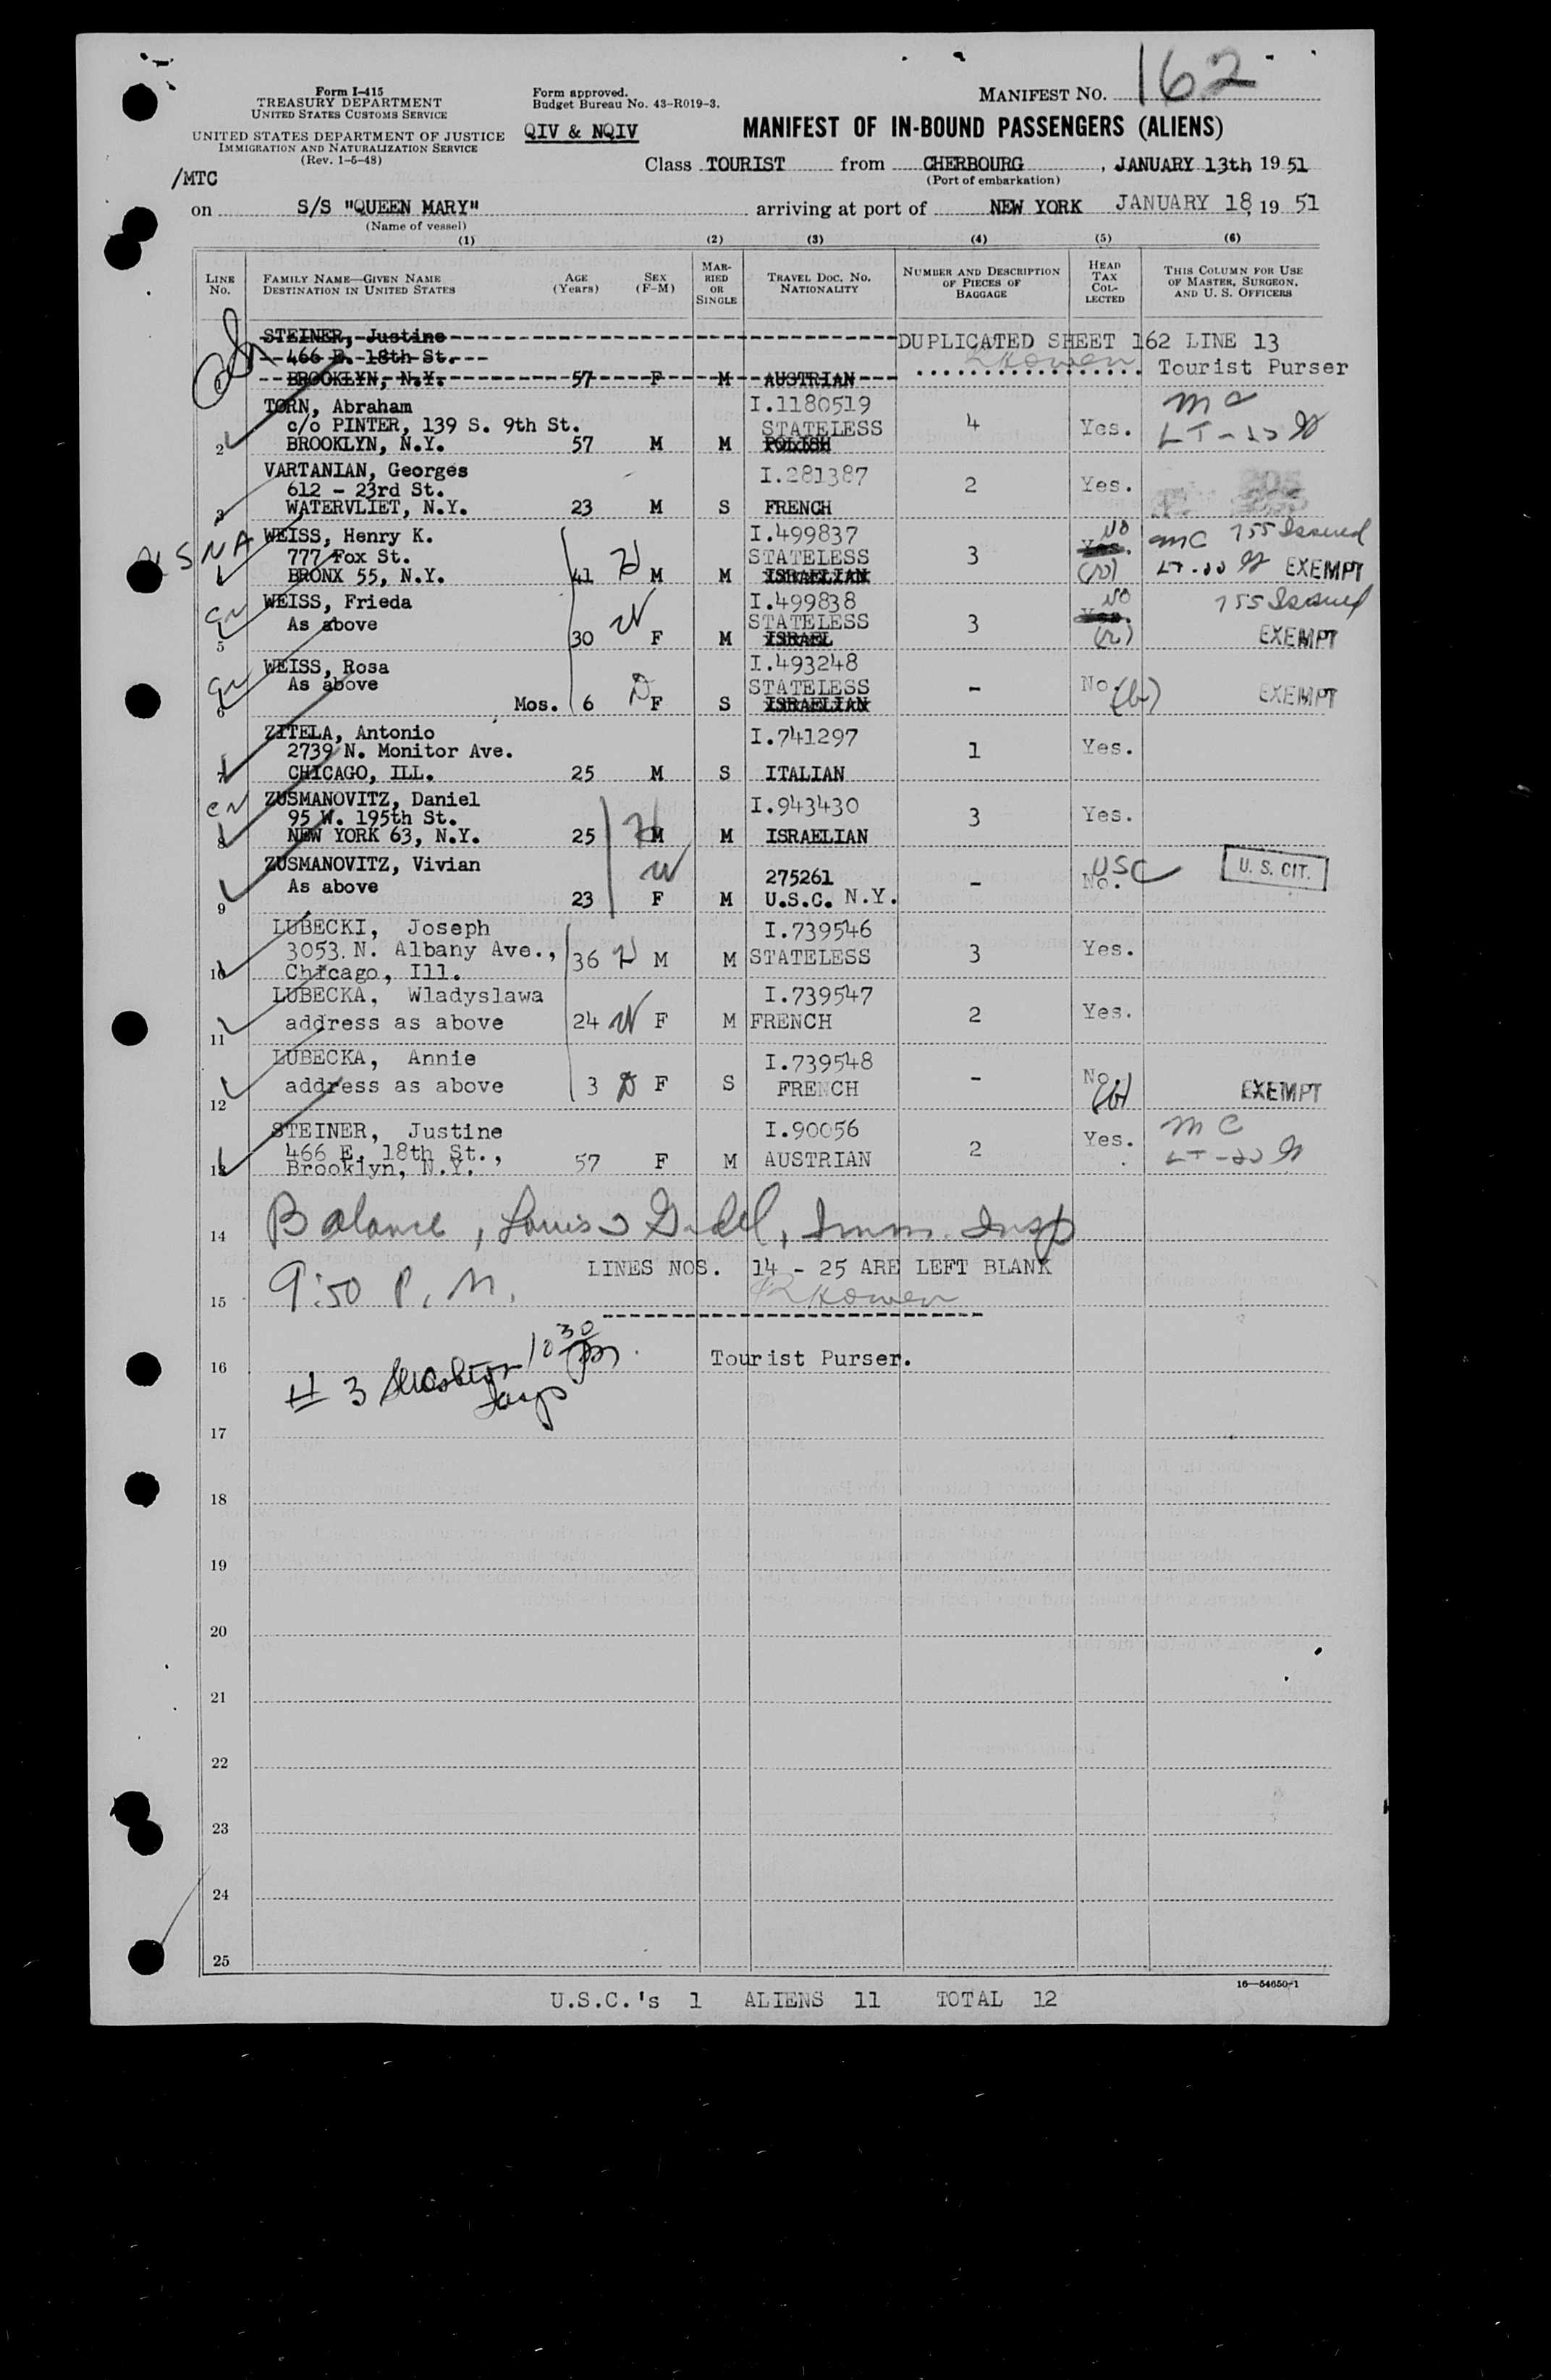 Form I-415
TREASURY DEPARTMENT
UNITED STATES CUSTOMS SERVICE
UNITED STATES DEPARTMENT OF JUSTICE
IMMIGRATION AND NATURALIZATION SERVICE
(Rev. 1-5-48)
/MTC
Form approved.
Budget Bureau No. 43-R019-3.
QIV & NQIV
MANIFEST NO. 162
MANIFEST OF IN-BOUND PASSENGERS (ALIENS)
Class TOURIST from CHERBOURG, JANUARY 13th 1951
(Port of embarkation)
on S/S "QUEEN MARY" arriving at port of NEW YORK JANUARY 18, 19 51
(Name of vessel)
(1) (2) (3) (4) (5) (6)
LINE NO. FAMILY NAME—GIVEN NAME DESTINATION IN UNITED STATES AGE (Years) SEX (F-M) MARRIED OR SINGLE TRAVEL DOC. NO. NATIONALITY NUMBER AND DESCRIPTION OF PIECES OF BAGGAGE HEAD TAX COLLECTED THIS COLUMN FOR USE OF MASTER, SURGEON, AND U. S. OFFICERS
STEINER, Justine DUPLICATED SHEET 162 LINE 13
466 E. 18th St.
BROOKLYN, N.Y. 57 F M AUSTRIAN Tourist Purser
TORN, Abraham I.1180519 MC
c/o PINTER, 139 S. 9th St. STATELESS 4 Yes.
2 BROOKLYN, N.Y. 57 M M POLISH
VARTANIAN, Georges I.281387
612 - 23rd St. 2 Yes.
3 WATERVLIET, N.Y. 23 M S FRENCH
USNA WEISS, Henry K. I.499837 NO MC 755 Issued
777 Fox St. STATELESS 3 Yes.
4 BRONX 55, N.Y. 41 H M M ISRAELIAN EXEMPT
WEISS, Frieda I.499838 NO 755 Issued
As above STATELESS 3 Yes.
5 30 W F M ISRAEL EXEMPT
WEISS, Rosa I.493248
As above STATELESS - No. EXEMPT
6 Mos. 6 D F S ISRAELIAN
ZITELA, Antonio I.741297
2739 N. Monitor Ave. 1 Yes.
7 CHICAGO, ILL. 25 M S ITALIAN
ZUSMANOVITZ, Daniel I.943430
95 W. 195th St. 3 Yes.
8 NEW YORK 63, N.Y. 25 H M M ISRAELIAN
ZUSMANOVITZ, Vivian W
As above 275261 - No. USC U. S. CIT.
9 23 F M U.S.C. N.Y.
LUBECKI, Joseph I.739546
3053 N. Albany Ave., 36 H M M STATELESS 3 Yes.
10 Chicago, Ill.
LUBECKA, Wladyslawa I.739547
address as above 24 W F M FRENCH 2 Yes.
11
LUBECKA, Annie I.739548
address as above 3 D F S FRENCH - No. EXEMPT
12
STEINER, Justine I.90056 MC
466 E. 18th St., 2 Yes.
13 Brooklyn, N.Y. 57 F M AUSTRIAN
14 Balance, Louis Imm. Insp
LINES NOS. 14 - 25 ARE LEFT BLANK
15 9:50 P.M.
16 Tourist Purser.
# 3
17
18
19
20
21
22
23
24
25
16—54650-1
U.S.C.'s 1 ALIENS 11 TOTAL 12